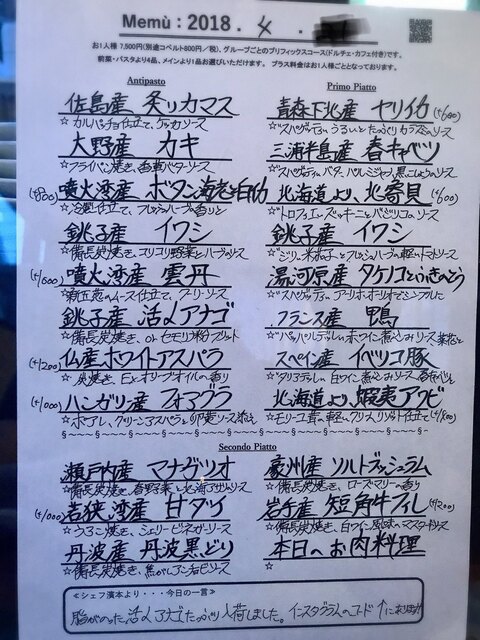 Menù : 2018. 4.
お1人様 7,500円(別途コペルト800円／税)、グループごとのプリフィックスコース(ドルチェ・カフェ付き)です。
前菜・パスタより4品、メインより1品お選びいただけます。 プラス料金はお1人様ごととなっております。
Antipasto
佐島産 炙りカマス
☆カルパッチョ仕立て、ケッカソース
大野産 カキ
☆フライパン焼き、香草バターソース
(+800) 噴火湾産 ボタン海老と白イカ
☆冷製仕立て、フレッシュハーブの香り
銚子産 イワシ
☆備長炭焼き、コリコリ野菜とハーブのソース
(+600) 噴火湾産 雲丹
☆新玉葱のムース仕立て、
銚子産 活〆アナゴ
☆備長炭焼き、or セモリナ粉フリット
(+1200) 仏産ホワイトアスパラ
☆炭焼き、Exオリーブオイルの香り
(+1000) ハンガリー産 フォアグラ
☆ポアレ、グリーンアスパラと卵黄ソース添え
Primo Piatto
青森下北産 ヤリイカ (+600)
☆スパゲッティ、うるいとたっぷりカラスミのソース
三浦半島産 春キャベツ
☆スパゲッティ、バター、パルミジャーノ、黒こしょうのソース
北海道より、北寄貝 (+600)
☆トロフィエ、ズッキーニとバジリコのソース
銚子産 イワシ
☆フレッシュハーブの軽いトマトソース
湯河原産 タケノコとふきのとう
☆スパゲッティ、アーリオ・オーリオでシンプルに
フランス産 鴨
☆パッパルデッレ、ホワイン煮込みソース 菜花と
スペイン産 イベリコ豚
☆タリアテッレ、白ワイン煮込みソース
北海道より、蝦夷アワビ
☆モリーユ茸の軽いクリームリゾット仕立て (+1800)
Secondo Piatto
瀬戸内産 マナガツオ
☆備長炭焼き、春野菜と北海アサリのソース
(+1000) 若狭湾産 甘ダイ
☆うろこ焼き、シェリービネガーソース
丹波産 丹波黒どり
☆備長炭焼き、焦がしアンチョビソース
豪州産 ソルトブッシュラム
☆備長炭焼き、ローズマリーの香り
岩手産 短角牛フィレ (+1200)
☆備長炭焼き、白ワイン風味のマスタードソース
本日のお肉料理
☆
≪シェフ濱本より・・・今日の一言≫
脂がのった活〆アナゴたっぷり入荷しました。インスタグラムのコード↑にあります!!